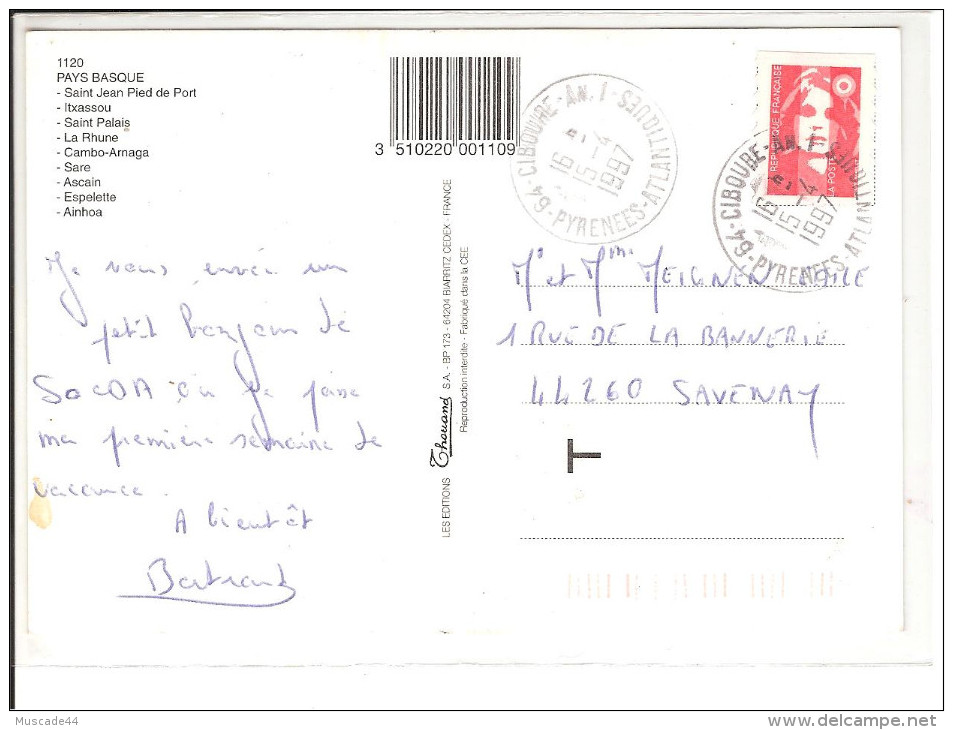 1120
PAYS BASQUE
- Saint Jean Pied de Port
- Itxassou
- Saint Palais
- La Rhune
- Cambo-Arnaga
- Sare
- Ascain
- Espelette
- Ainhoa
3 510220 001109
64-CIBOURE-AN. 1-
PYRENEES-ATLANTIQUES
16
15-4
1997
REPUBLIQUE FRANÇAISE
LA POSTE
64-CIBOURE-AN. 1
PYRENEES-ATLANTIQUES
16
15-4
1997
Je vous envoi un
petit bonjour de
SOCOA où je passe
ma première semaine de
vacance.
A bientôt
Bertrand
LES EDITIONS Thouand S.A. - BP 173 - 64204 BIARRITZ CEDEX - FRANCE
Reproduction interdite - Fabriqué dans la CEE
Mr et Mme MEIGNEN
1 RUE DE LA BANNERIE
44260 SAVENAY
T
Muscade44
www.delcampe.net